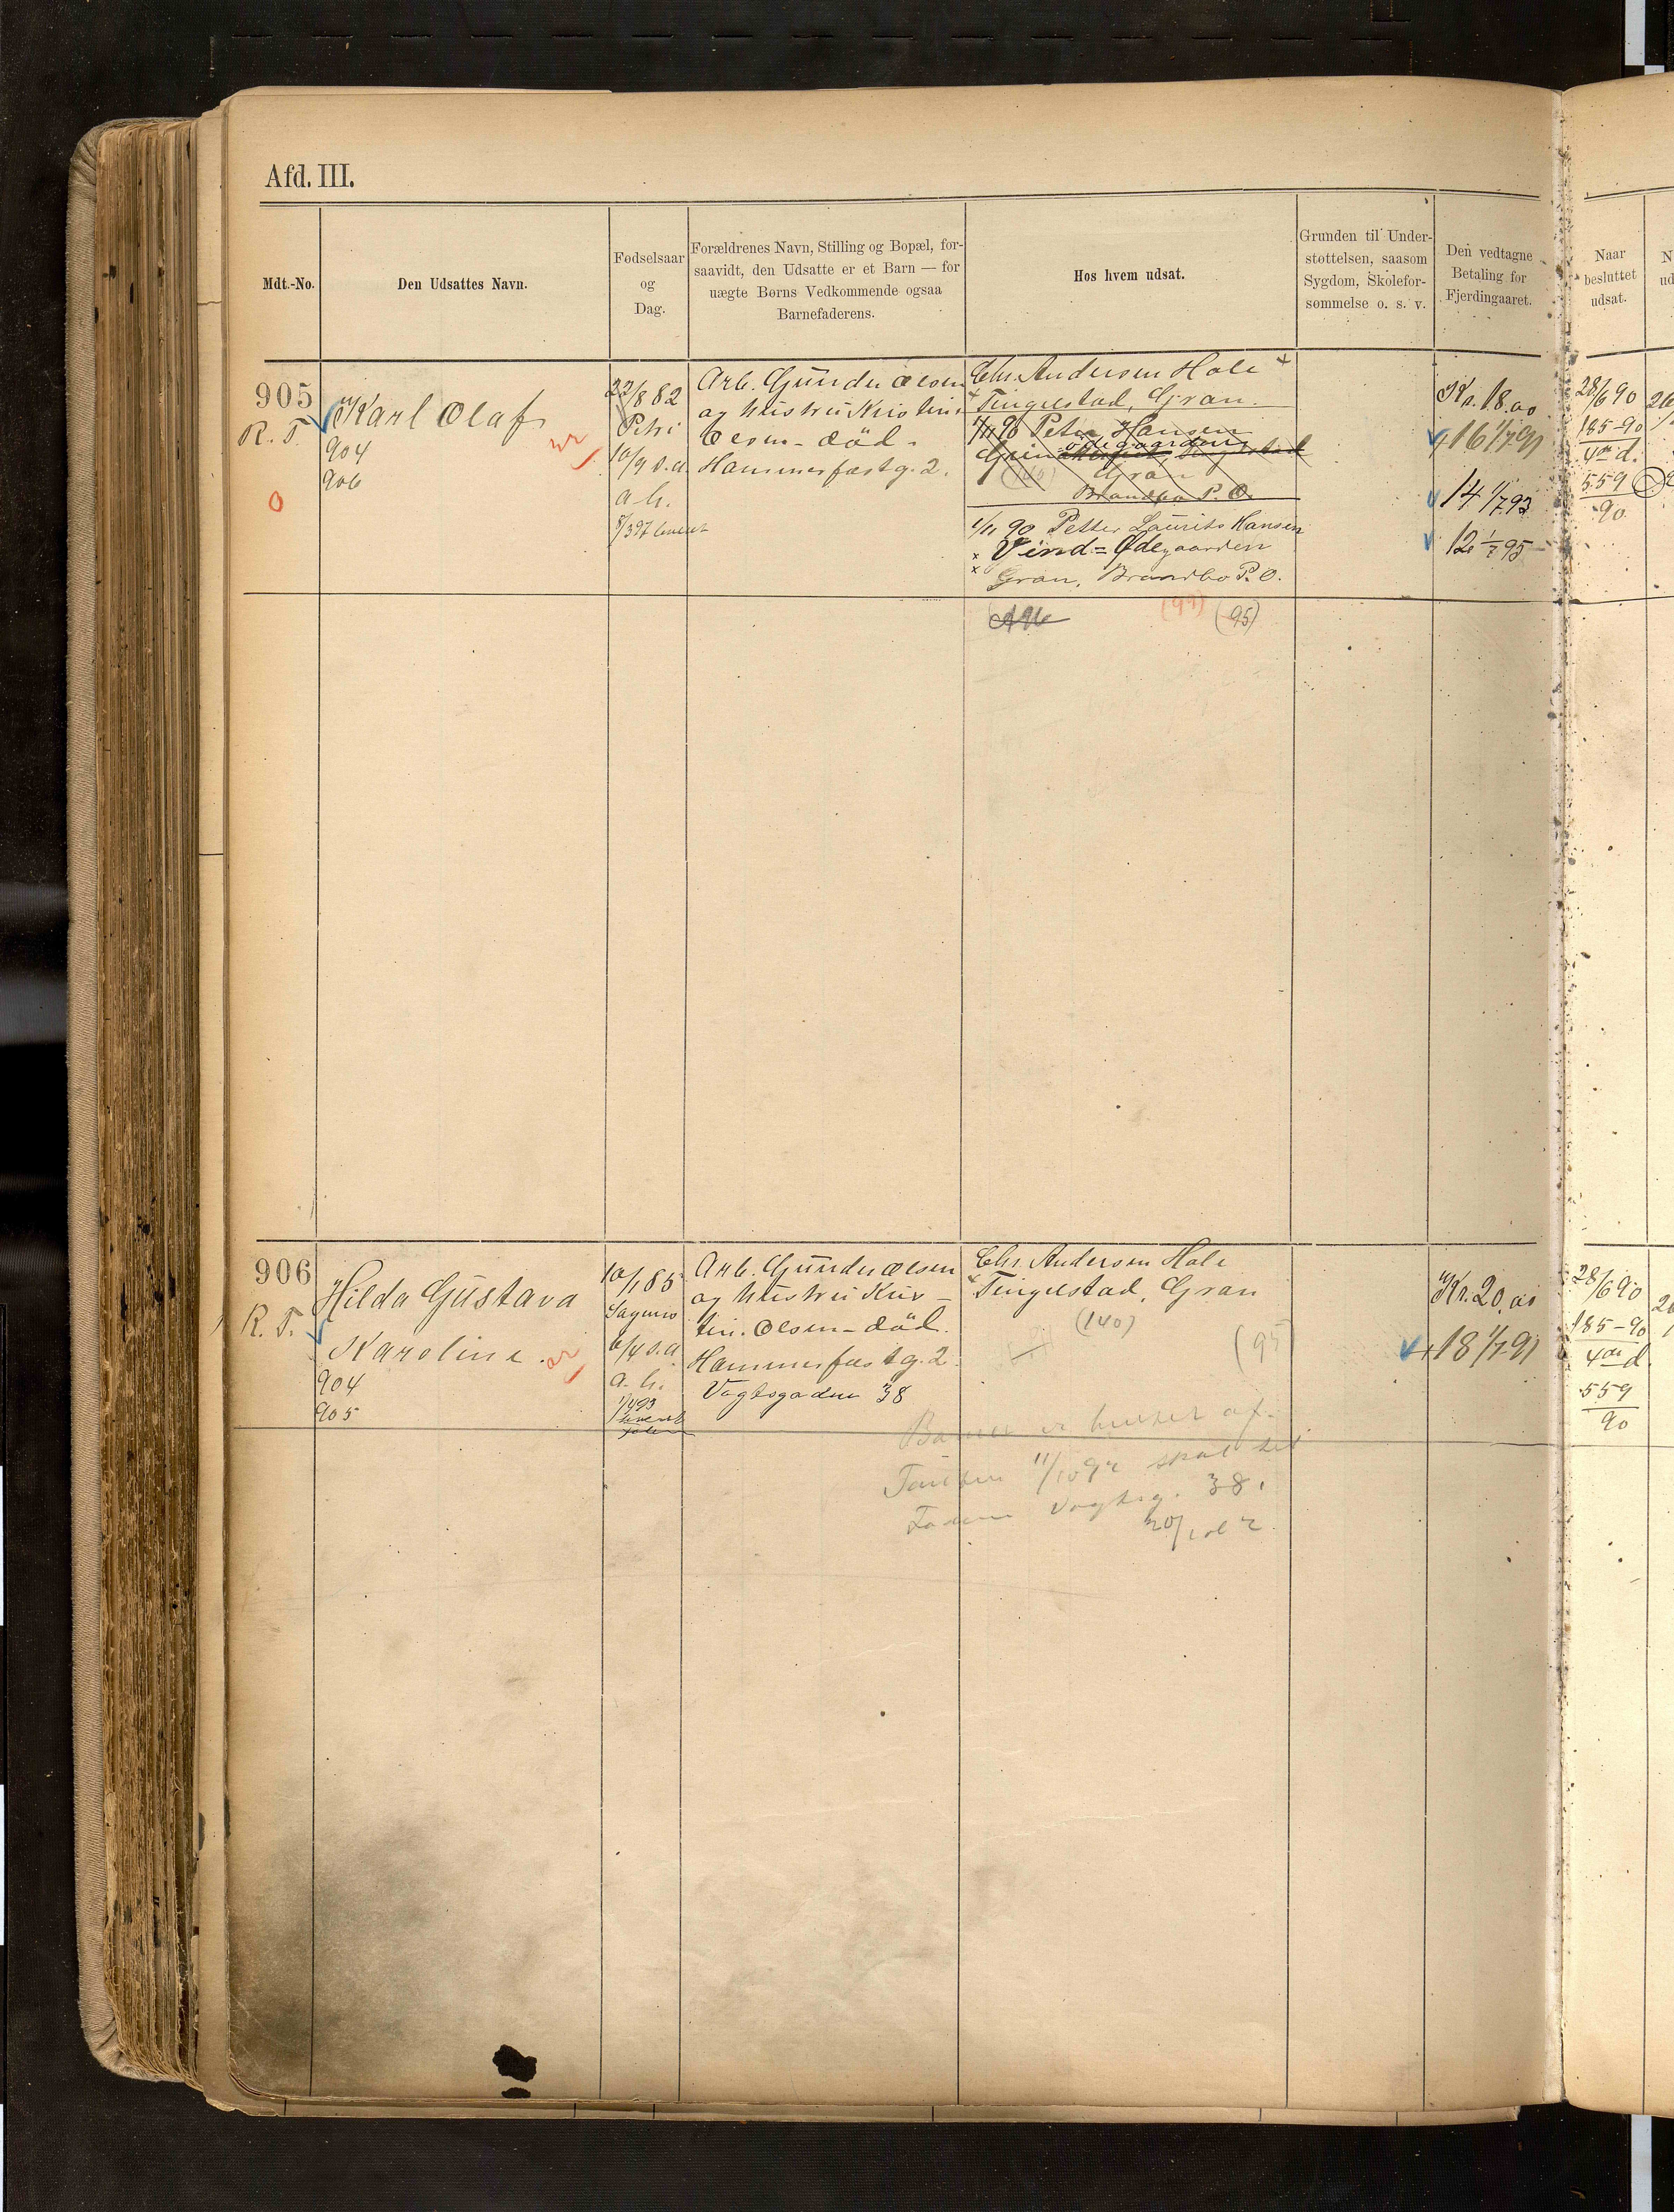 Afd. III.
Mdt.-No.
Den Udsattes Navn.
Fødselsaar
og
Dag.
Forældrenes Navn, Stilling og Bopæl, for-
saavidt, den Udsatte er et Barn — for
uægte Børns Vedkommende ogsaa
Barnefaderens.
Hos hvem udsat.
Grunden til Under-
støttelsen, saasom
Sygdom, Skolefor-
sømmelse o. s. v.
Den vedtagne
Betaling for
Fjerdingaaret.
Naar
besluttet
udsat.
905
R. T.
Karl Olaf
904
906
22/8 82
Petri
10/9 s.a.
a. h.
Arb. Gunder Olsen
og Hustru Kristine
Olsen - död.
Hammerfæstg. 2.
Chr. Andersen Hole
Tingelstad, Gran.
1/11 90 Peter Hansen
Gran
Brandbo P. O.
1/11 90 Petter Laurits Hansen
Vind = Ødegaarden
Gran, Brandbo P. O.
(95)
Kr. 18.00
16 1/7 91
14 1/7 93
12 1/7 95
28/6 90
185-90
559
90
906
R. T.
Hilda Gustava
Karoline.
904
905
10/1 85
6/4 s.a.
a. h.
Arb. Gunder Olsen
og Hustru Kris-
tin. Olsen - död.
Hammerfæstg. 2.
Vogtsgaden 38
Chr. Andersen Hole
Tingelstad, Gran
(140)
(95
Kr. 20.00
18 1/7 91
28/6 90
185-90
559
90
Barnet er hentet af
11/10 92 skal
Vogtsg. 38.